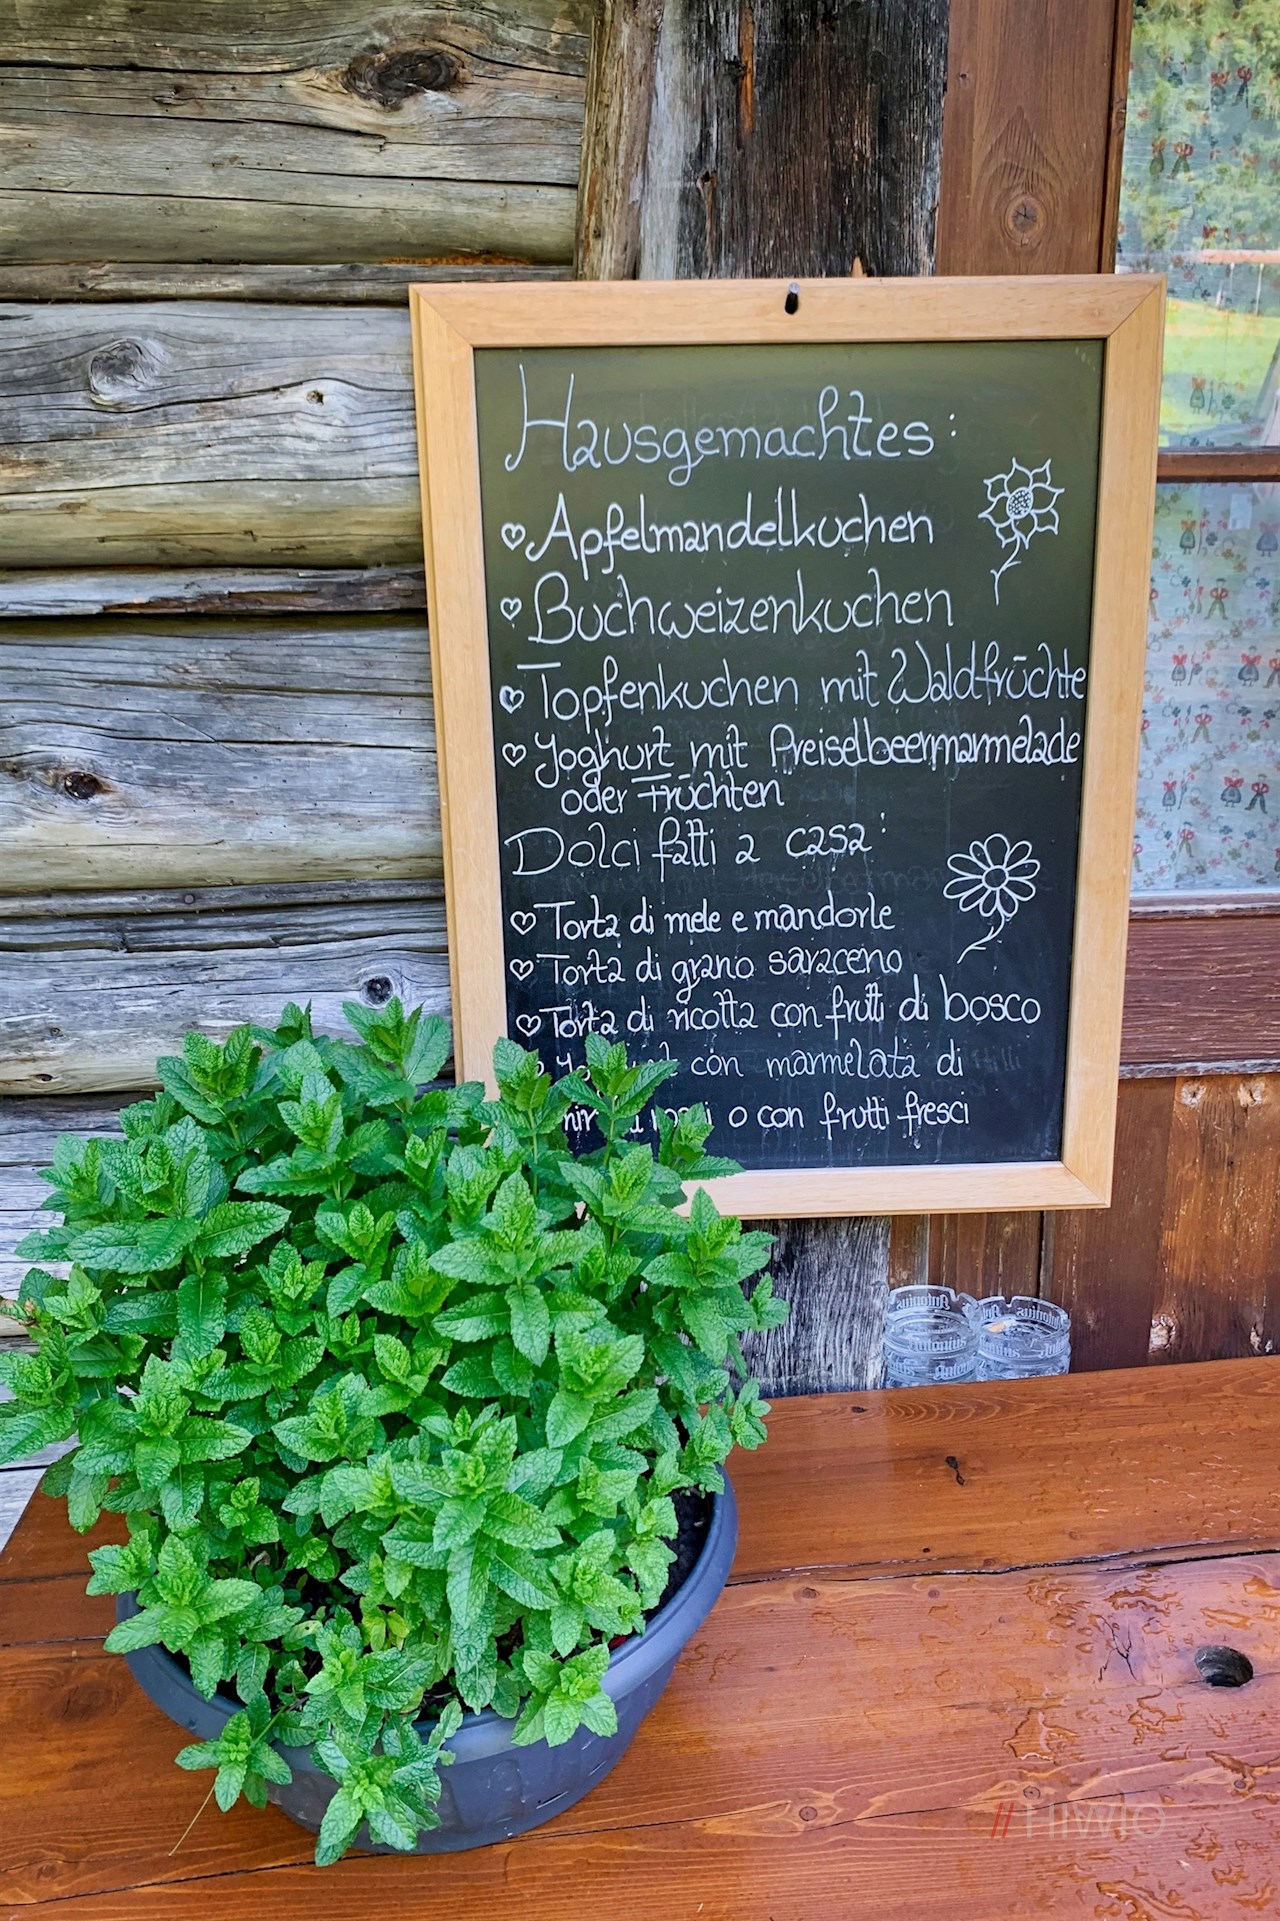 Hausgemachtes:
Apfelmandelkuchen
Buchweizenkuchen
Topfenkuchen mit Waldfrüchte
Joghurt mit Preiselbeermarmelade
oder Früchten
Dolci fatti a casa:
Torta di mele e mandorle
Torta di grano saraceno
Torta di ricotta con frutti di bosco
con marmelata di
o con frutti fresci
Antonius
Antonius
// HIWIO